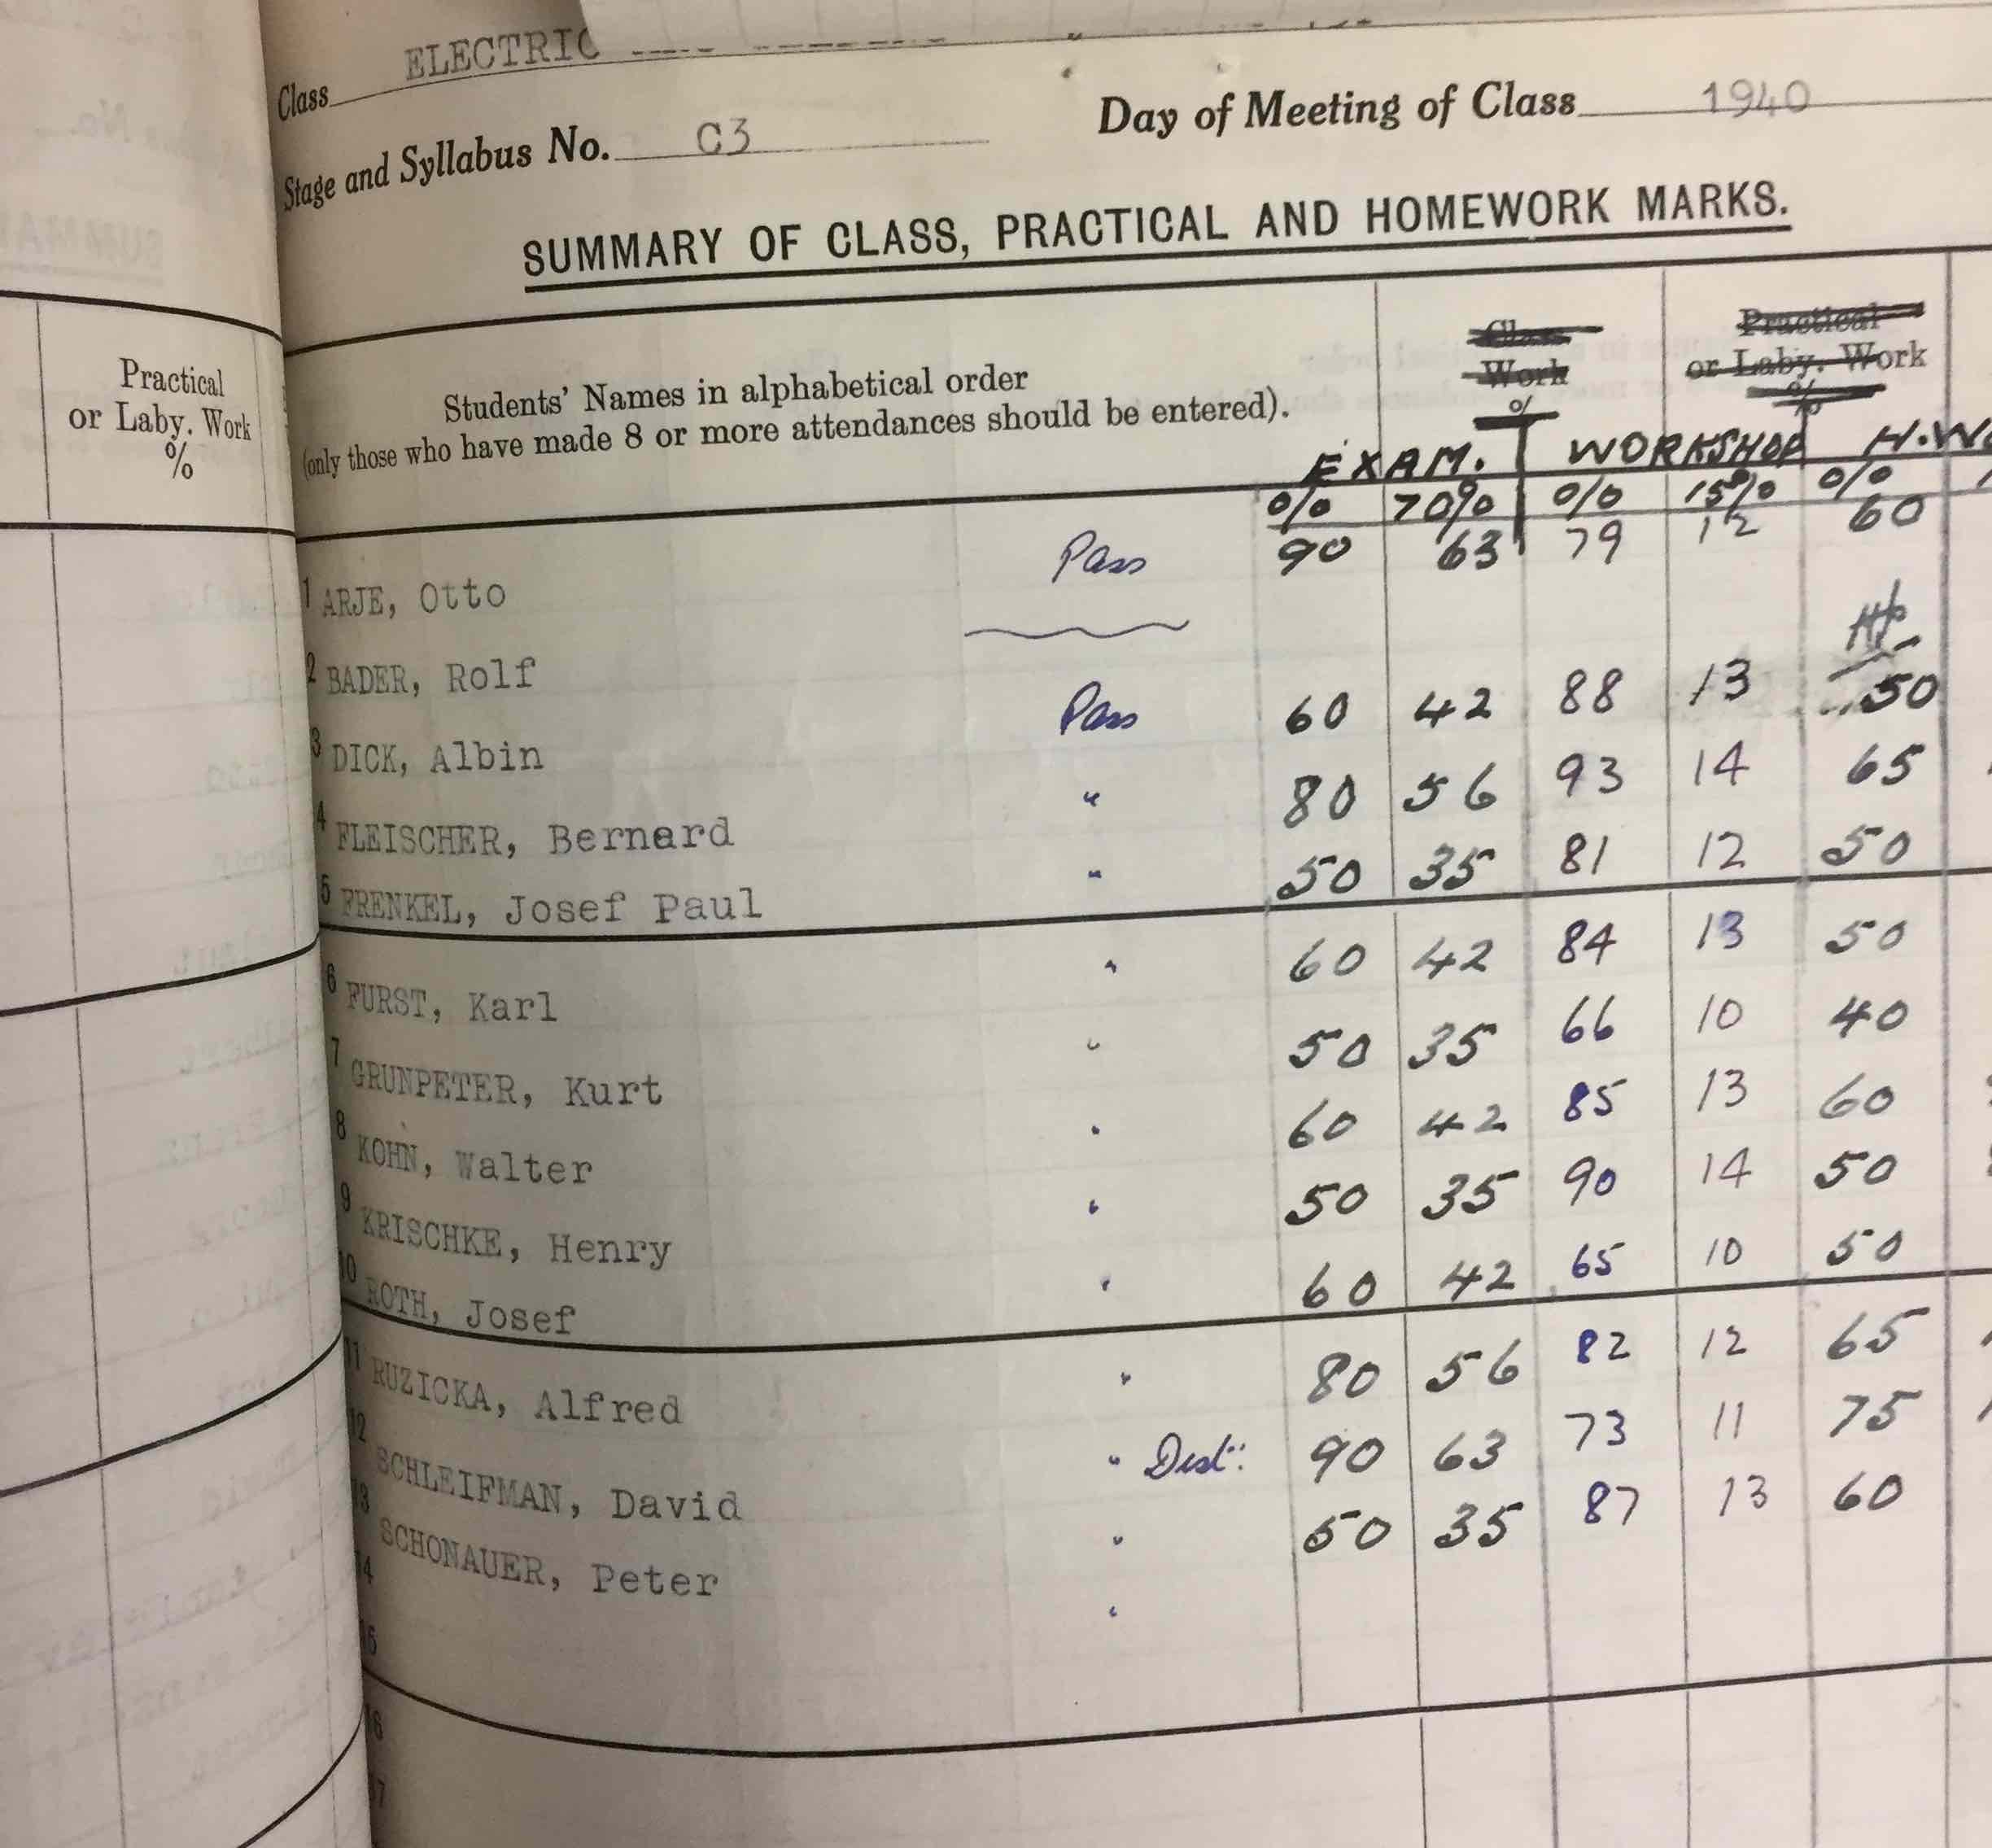 Class ELECTRIC
Stage and Syllabus No. C3
Day of Meeting of Class 1940
SUMMARY OF CLASS, PRACTICAL AND HOMEWORK MARKS.
Practical
or Laby. Work
%
Students' Names in alphabetical order
(only those who have made 8 or more attendances should be entered).
Class
Work
%
Practical
or Laby. Work
%
EXAM. WORKSHOP H.W
% 70% % 15% %
1 ARJE, Otto Pass 90 63 79 12 60
2 BADER, Rolf
3 DICK, Albin Pass 60 42 88 13 50
4 FLEISCHER, Bernard " 80 56 93 14 65
5 FRENKEL, Josef Paul " 50 35 81 12 50
6 FURST, Karl " 60 42 84 13 50
7 GRUNPETER, Kurt " 50 35 66 10 40
8 KOHN, Walter " 60 42 85 13 60
9 KRISCHKE, Henry " 50 35 90 14 50
10 ROTH, Josef " 60 42 65 10 50
11 RUZICKA, Alfred " 80 56 82 12 65
12 SCHLEIFMAN, David " Dist: 90 63 73 11 75
13 SCHONAUER, Peter " 50 35 87 13 60
14
15
16
17